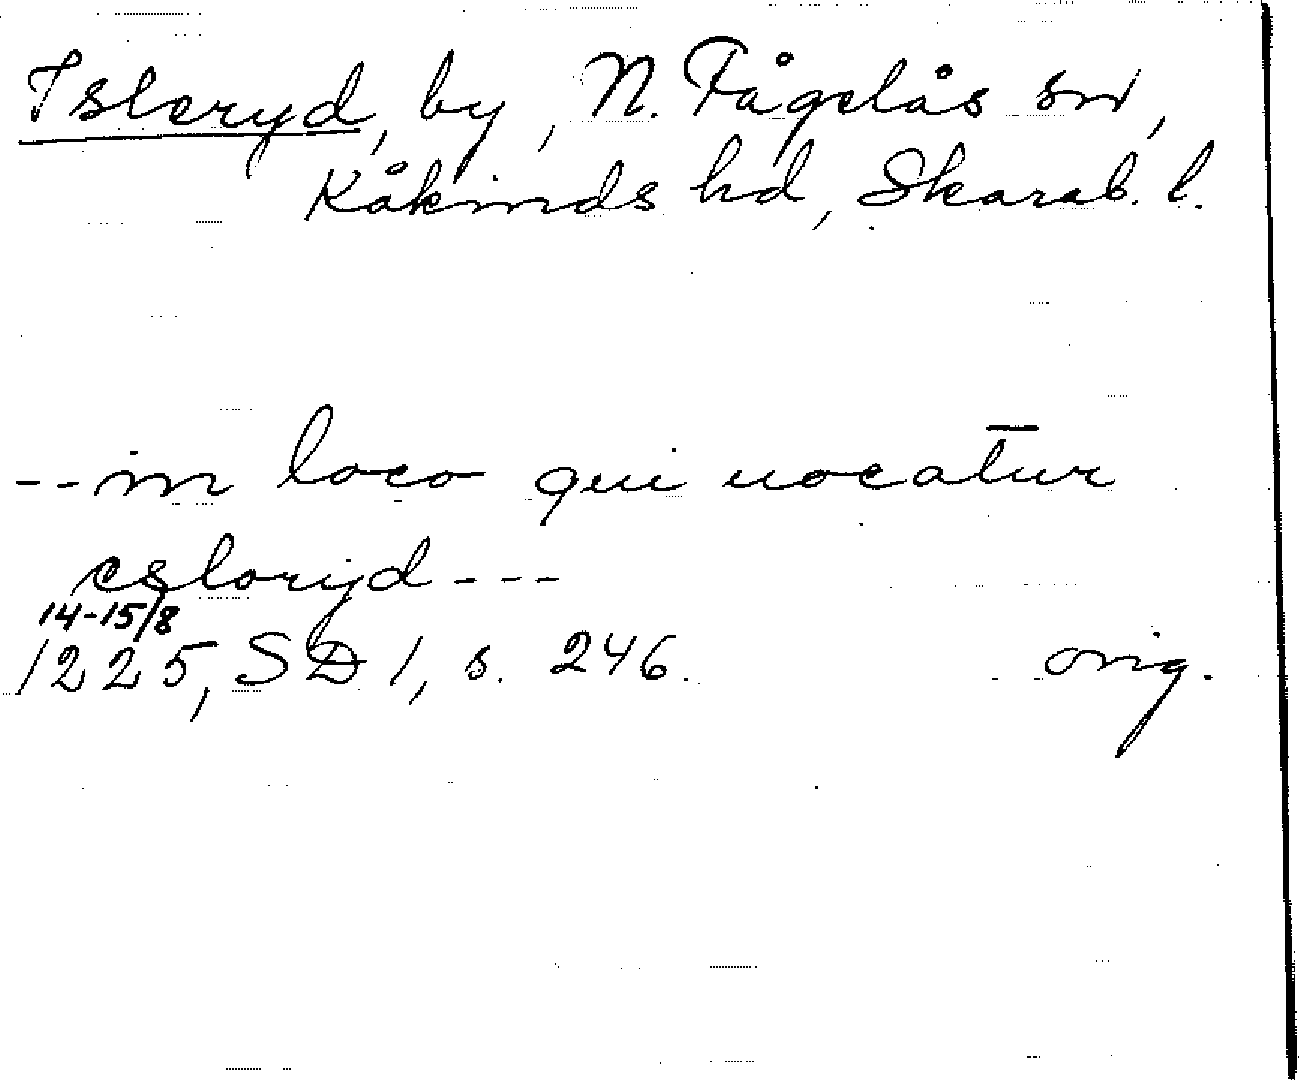 Isleryd, by, N. Fågelås sn,
Kåkinds hd, Skarab. l.
--in loco qui uocatur
esloryd---
14-15/8
1225, SD 1, s. 246. orig.